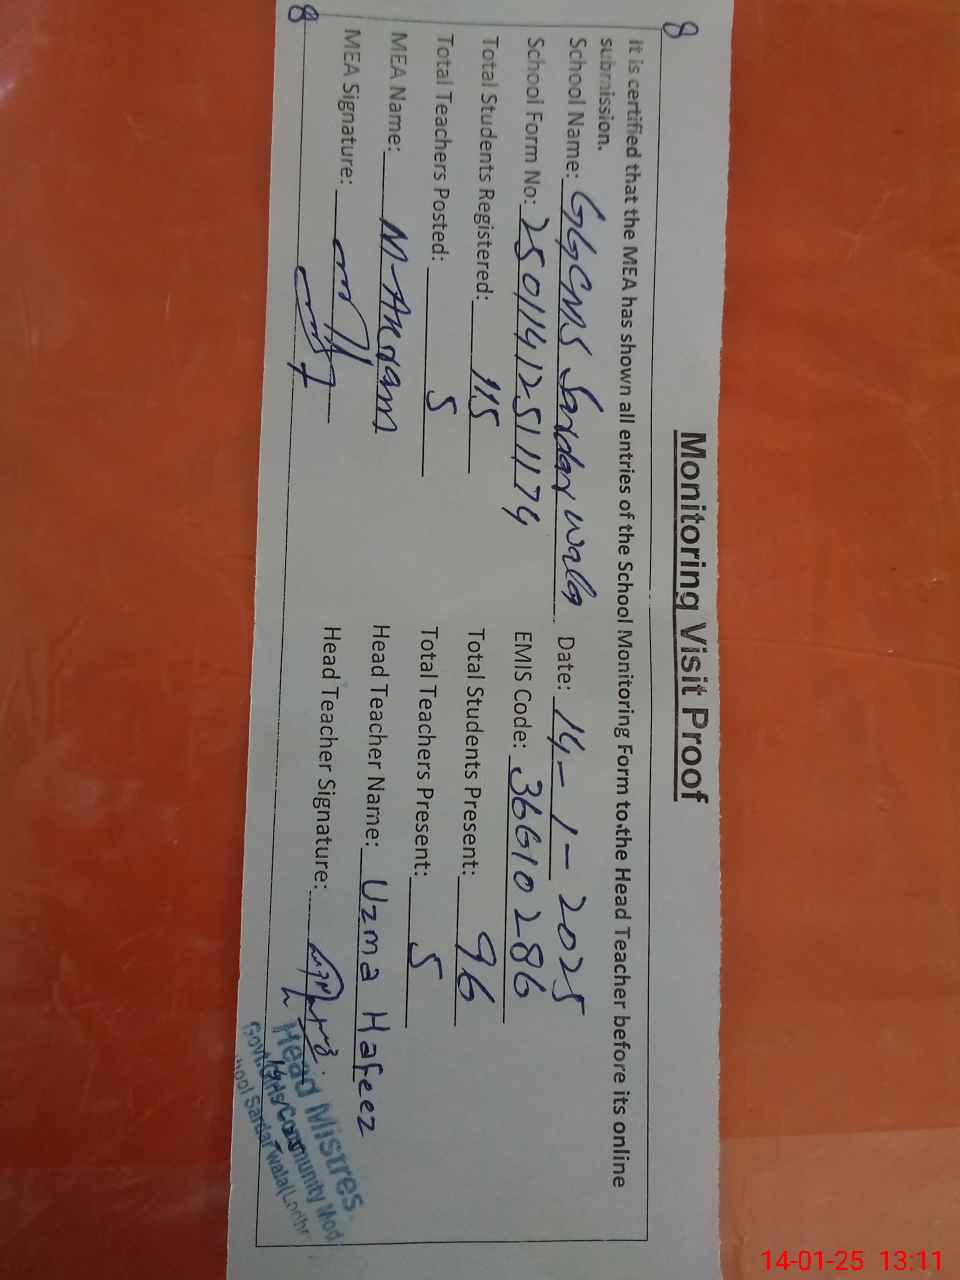 8
Monitoring Visit Proof
It is certified that the MEA has shown all entries of the School Monitoring Form to the Head Teacher before its online
submission.
School Name: GGCMS Sardar wala Date: 14-1-2025
School Form No: 250114125111174 EMIS Code: 36610286
Total Students Registered: 115 Total Students Present: 96
Total Teachers Posted: 5 Total Teachers Present: 5
MEA Name: M-Akram Head Teacher Name: Uzma Hafeez
MEA Signature: Head Teacher Signature:
8
Head Mistres
Govt. Girls Community Mod
hool Sardar wala(Lodhr
14-01-25 13:11